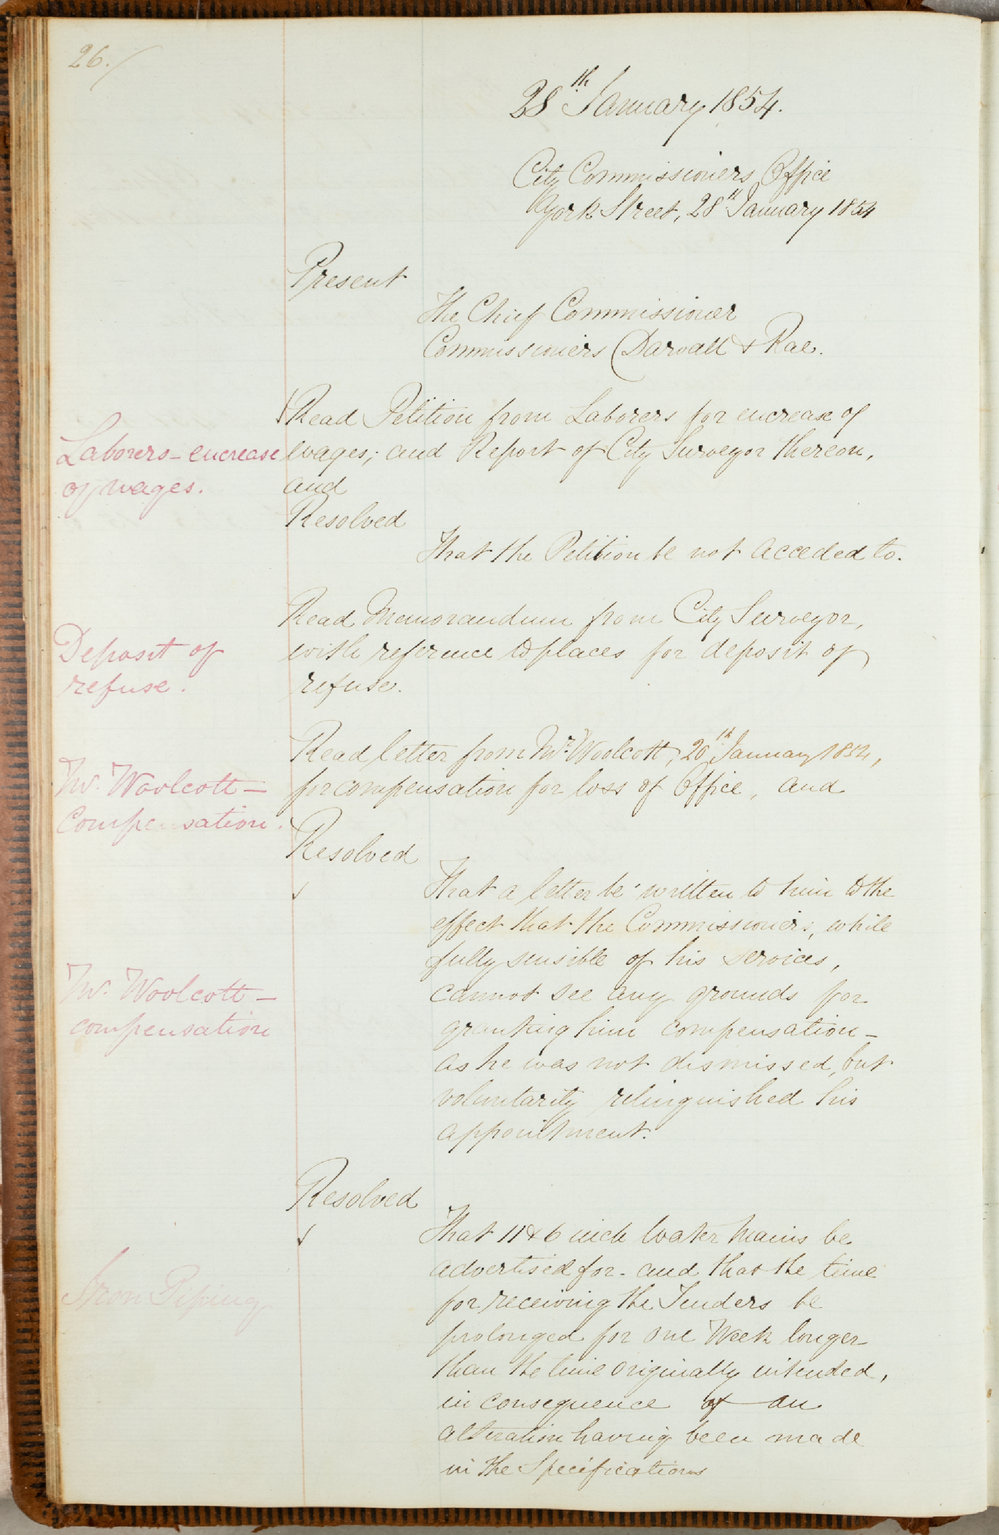 26.
28th January 1854.
City Commissioners Office
York Street, 28th January 1854
Present
The Chief Commissioner
Commissioners Darvall & Rae.
Laborers - encrease
of wages.
Read Petition from Laborers for encrease of
wages; and Report of City Surveyor thereon,
and
Resolved
That the Petition be not acceded to.
Deposit of
refuse.
Read Memorandum from City Surveyor,
with reference to places for deposit of
refuse.
Mr. Woolcott -
Compensation.
Read letter from Mr. Woolcott, 20th January 1854,
for compensation for loss of Office, and
Resolved
That a letter be written to him to the
effect that the Commissioners, while
fully sensible of his services,
Mr. Woolcott -
compensation
cannot see any grounds for
granting him compensation -
as he was not dismissed, but
voluntarily relinquished his
appointment.
Resolved
Iron Piping
That 11 & 6 inch Water Mains be
advertised for - and that the time
for receiving the Tenders be
prolonged for one Week longer
than the time originally intended,
in consequence of an
alteration having been made
in the Specifications